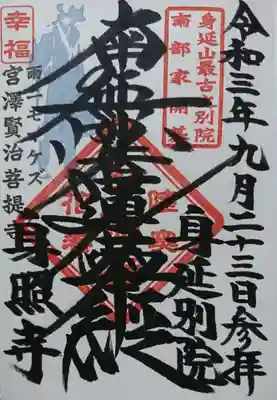 令和三年九月二十三日参拝
身延別院
身延山最古の別院
南部家開基
南無妙法蓮華経
幸福
雨ニモマケズ
宮澤賢治菩提寺
身照寺